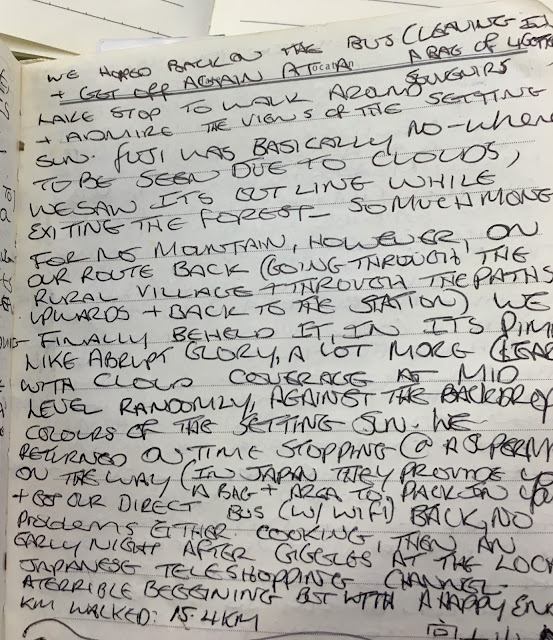 WE HOPED BACK ON THE BUS (LEAVING IN
+ GET OFF AGAIN AT A A BAG OF
LAKE STOP TO WALK AROUND SOUVENIRS
+ ADMIRE THE VIEWS OF THE SETTING
SUN. FUJI WAS BASICALLY NO-WHERE
TO BE SEEN DUE TO CLOUDS,
WE SAW ITS OUTLINE WHILE
EXITING THE FOREST - SO MUCH MONEY
FOR NO MOUNTAIN, HOWEVER, ON
OUR ROUTE BACK (GOING THROUGH THE
RURAL VILLAGE + THROUGH THE PATHS
UPWARDS + BACK TO THE STATION) WE
FINALLY BEHELD IT, IN ITS
LIKE ABRUPT GLORY, A LOT MORE CLEAR
WITH CLOUD COVERAGE AT MID
LEVEL RANDOMLY, AGAINST THE BACKDROP
COLOURS OF THE SETTING SUN. WE
RETURNED ON TIME STOPPING @ A SUPERM
ON THE WAY (IN JAPAN THEY PROVIDE YO
A BAG + AREA TO PACK IN YO
+ GOT OUR DIRECT BUS (W/ WIFI) BACK, NO
PROBLEMS EITHER. COOKING, THEN AN
EARLY NIGHT AFTER GIGGLES AT THE LOCAL
JAPANESE TELESHOPPING CHANNEL.
A TERRIBLE BEGGINING BUT WITH A HAPPY END
KM WALKED: 15.4KM